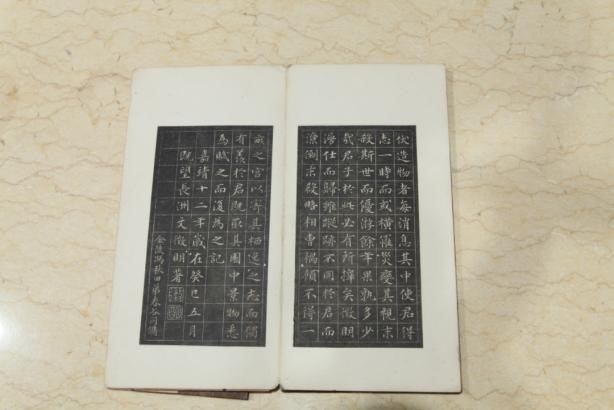 伏造物者每消息其中使君得
志一時而或橫罹災變其視末
殺斯世而優游餘年果孰多少
哉君子於此必有所擇矣徵明
漫仕而歸雖蹤跡不同於君而
潦倒末殺略相曹耦顧不得一
畝之宮以寄其栖逸之志而獨
有羨於君既取其園中景物悉
為賦之而復為之記
嘉靖十二年歲在癸巳五月
既望長洲文徵明著
金陵馮秋田弟春谷同鐫